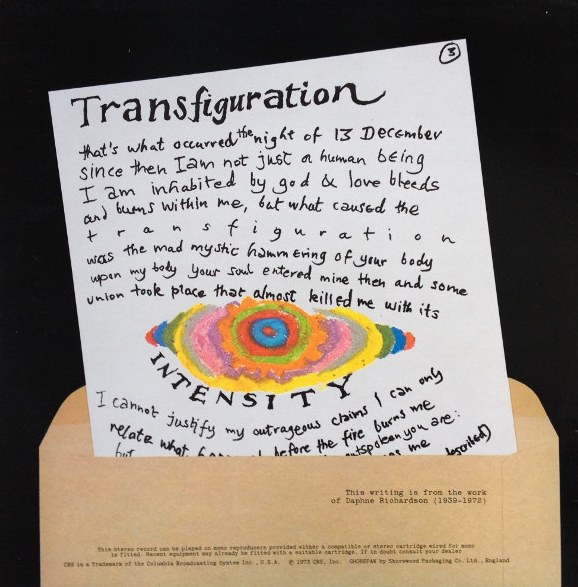 3
Transfiguration
that's what occurred the night of 13 December
since then I am not just a human being
I am inhabited by god & love bleeds
and burns within me, but what caused the
transfiguration
was the mad mystic hammering of your body
upon my body your soul entered mine then and some
union took place that almost killed me with its
INTENSITY
I cannot justify my outrageous claims I can only
relate what before the fire burns me
but outspoken you are:
me
This writing is from the work
of Daphne Richardson (1939-1972)
This stereo record can be played on mono reproducers provided either a compatible or stereo cartridge wired for mono
is fitted. Recent equipment may already be fitted with a suitable cartridge. If in doubt consult your dealer
CBS is a Trademark of the Columbia Broadcasting System Inc., U.S.A. © 1973 CBS, Inc. SHOREPAK by Shorewood Packaging Co. Ltd., England